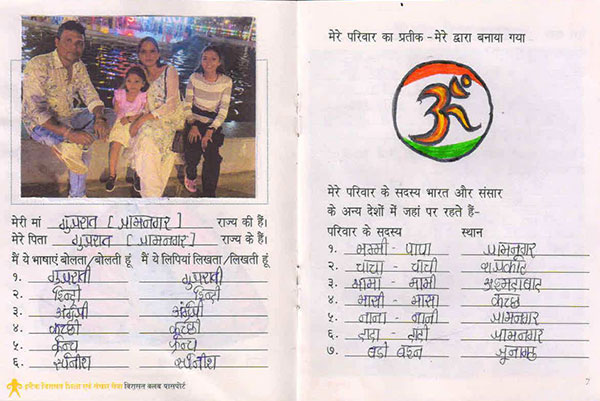 मेरी मां गुजरात [ जामनगर ] राज्य की हैं।
मेरे पिता गुजरात [ जामनगर ] राज्य के हैं।
मैं ये भाषाएं बोलता/बोलती हूं मैं ये लिपियां लिखता/लिखती हूं
१. गुजराती गुजराती
२. हिन्दी हिन्दी
३. अंग्रेजी अंग्रेजी
४. कच्छी कच्छी
५. फ्रेन्च फ्रेन्च
६. स्पेनीश स्पेनीश
इंटैक विरासत शिक्षा एवं संचार सेवा विरासत क्लब पासपोर्ट
मेरे परिवार का प्रतीक - मेरे द्वारा बनाया गया
ॐ
मेरे परिवार के सदस्य भारत और संसार
के अन्य देशों में जहां पर रहते हैं-
परिवार के सदस्य स्थान
१. मम्मी - पापा जामनगर
२. चाचा - चाची राजकोट
३. मामा - मामी अहमदाबाद
४. मासी - मासा कच्छ
५. नाना - नानी जामनगर
६. दादा - दादी जामनगर
७. बडी बहन जुनागढ
7